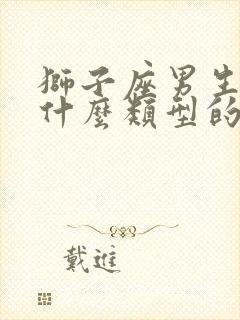 獅子座男生
什麼類型的
戴進